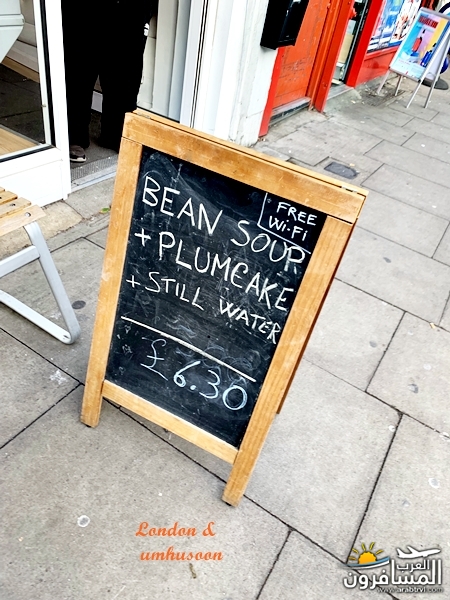 FREE
Wi-Fi
BEAN SOUP
+ PLUMCAKE
+ STILL WATER
£6.30
London &
umhusoon
العرب
المسافرون
www.arabtrvl.com